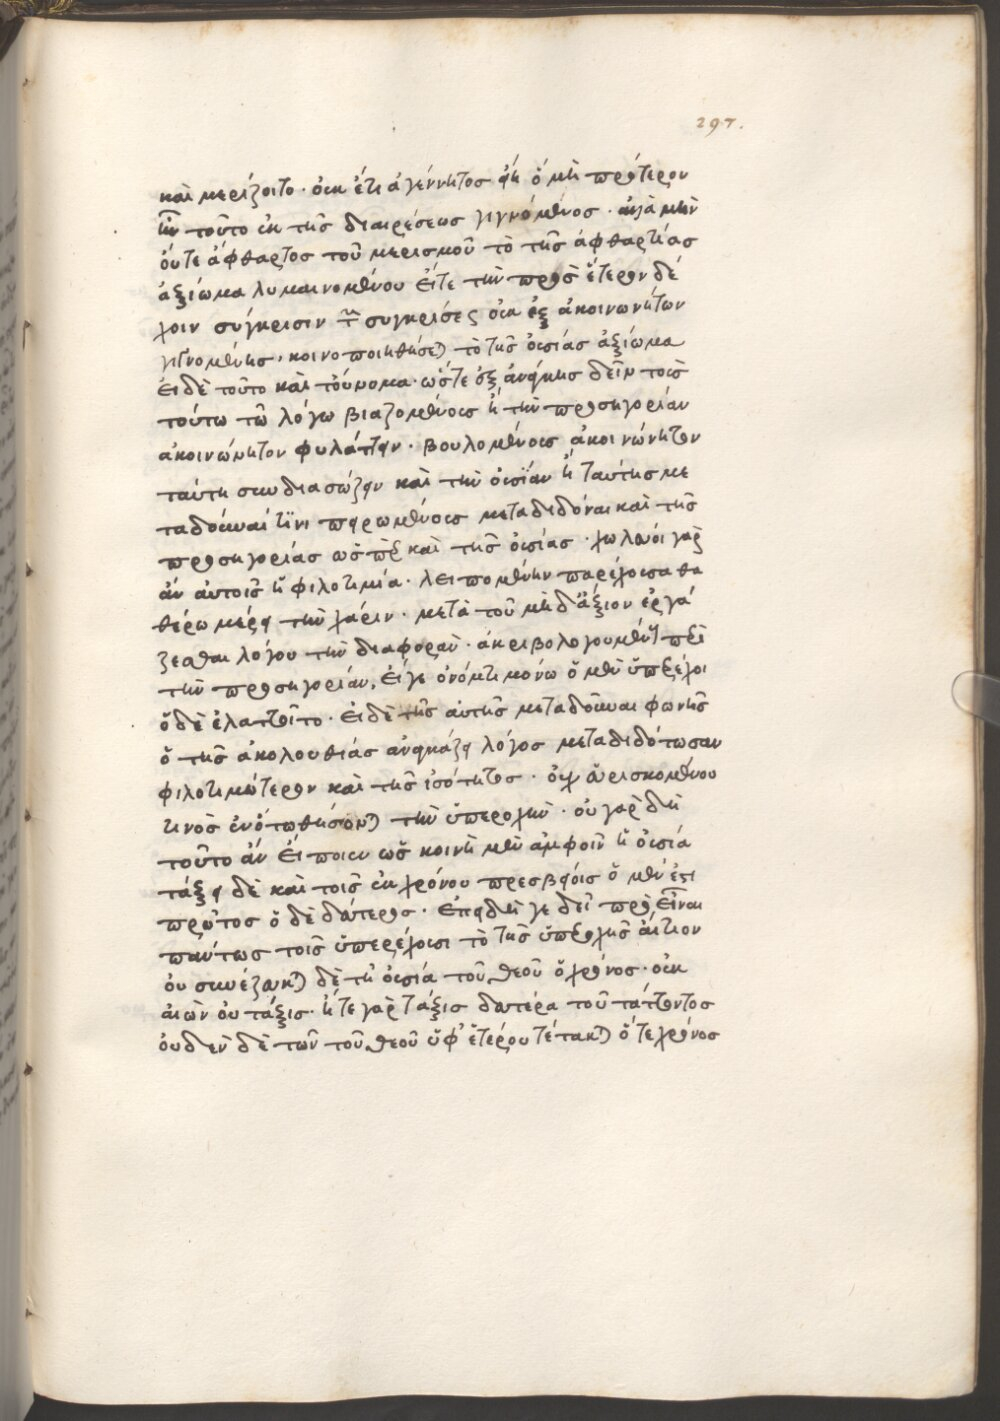 297.
καὶ μερίζοιτο· οὐκ ἔτι ἀγέννητος εἴη ὃ μὴ πρότερον
ἦν τοῦτο ἐκ τῆς διαιρέσεως γιγνόμενος· ἀλλὰ μὴν
οὔτε ἄφθαρτος τοῦ μερισμοῦ τὸ τῆς ἀφθαρσίας
ἀξίωμα λυμαινομένου εἴτε τὴν πρὸς ἕτερον δέ
χοιν σύγκρισιν τῆς συγκρίσεως οὐκ ἐξ ἀκοινωνήτων
γινομένης· κοινοποιηθήσεται τὸ τῆς οὐσίας ἀξίωμα
εἰ δὲ τοῦτο καὶ τοὔνομα· ὥστε ἐξ ἀνάγκης δεῖν τοὺς
τούτω τῶ λόγω βιαζομένους ἢ τὴν προσηγορίαν
ἀκοινώνητον φυλάττειν· βουλομένους ἀκοινώνητον
ταύτη συνδιασώζειν καὶ τὴν οὐσίαν ἢ ταύτης με
ταδοῦναί τινι πειρωμένους μεταδιδόναι καὶ τῆς
προσηγορίας ὥσπερ καὶ τῆς οὐσίας· χωλεύοι γὰρ
ἂν αὐτοῖς ἡ φιλοτιμία· λειπομένην παρέχουσα θα
θέρω μέρει τὴν χάριν· μετὰ τοῦ μηδ' ἄξιον ἐργά
ζεσθαι λόγου τὴν διαφορὰν· ἀκριβολογουμένων περὶ
τὴν προσηγορίαν, εἴγε ὀνόματι μόνω ὃ μὲν ὑπερέχοι
ὃ δὲ ἐλαττοῖτο· εἰ δὲ τῆς αὐτῆς μεταδοῦναι φωνῆς
ὃ τῆς ἀκολουθίας ἀναγκάζει λόγος μεταδιδότωσαν
φιλοτιμώτερον καὶ τῆς ἰσότητος· οὐχ εὑρισκομένου
τινὸς ἐν ὅτω θήσονται τὴν ὑπεροχὴν· οὐ γὰρ δὴ
τοῦτο ἂν εἴποιεν ὡς κοινὴ μὲν ἀμφοῖν ἡ οὐσία
τάξει δὲ καὶ τοῖς ἐκ χρόνου πρεσβείοις ὃ μὲν ἐστι
πρῶτος ὃ δὲ δεύτερος· ἐπειδή γε δεῖ προεῖναι
πάντως τοῖς ὑπερέχουσι τὸ τῆς ὑπεροχῆς αἴτιον
οὐ συνέζευκται δὲ τῆ οὐσία τοῦ θεοῦ ὃ χρόνος· οὐκ
αἰὼν οὐ τάξις· ἥτε γὰρ τάξις δευτέρα τοῦ τάττοντος
οὐδὲν δὲ τῶν τοῦ θεοῦ ὑφ' ἑτέρου τέτακται ὅτε χρόνος